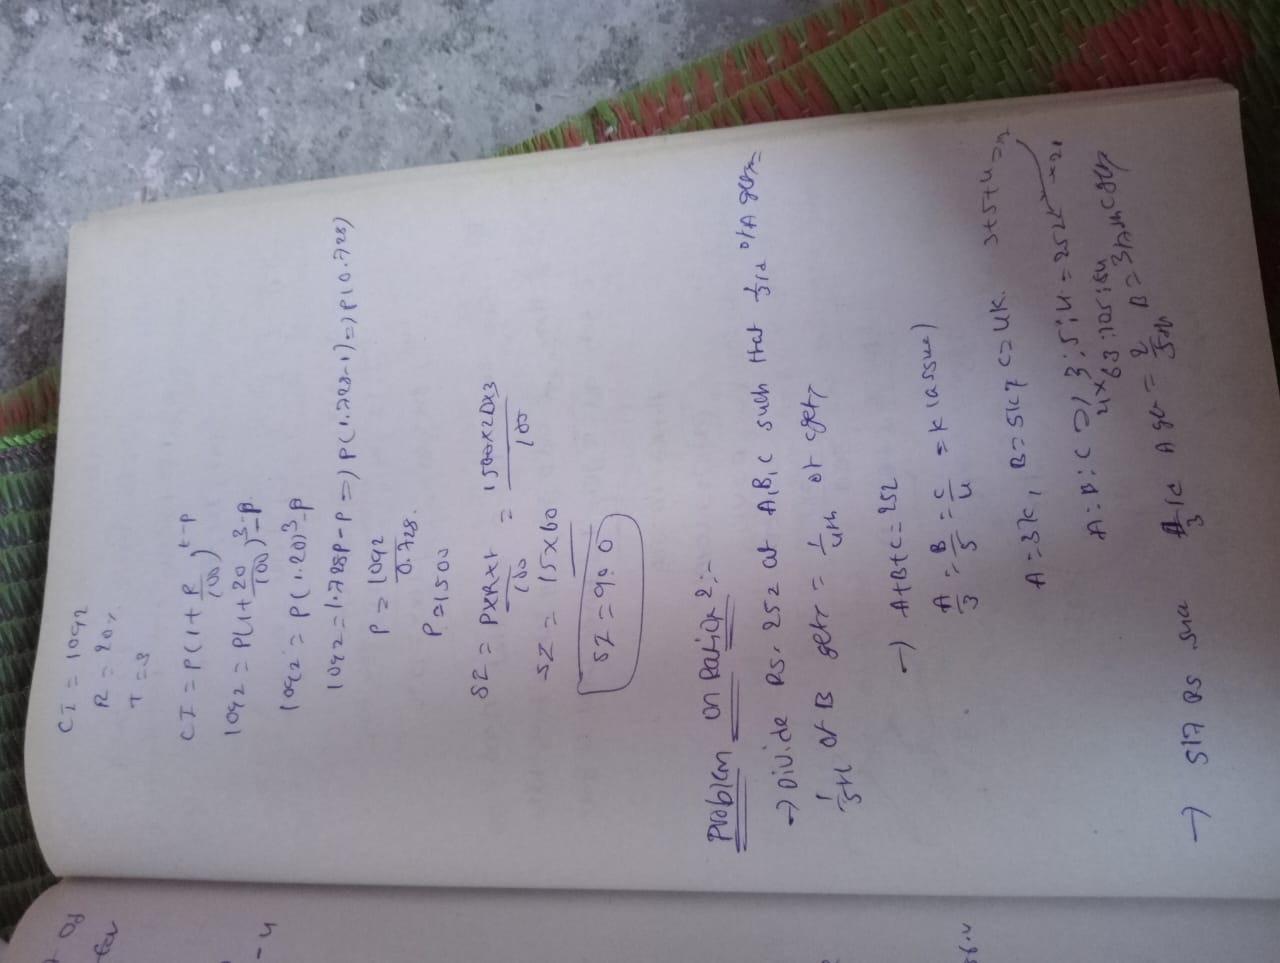 CI = 1092
R = 20%
T = 3
CI = P(1 + R/100)^t - P
1092 = P(1 + 20/100)^3 - P
1092 = P(1.20)^3 - P
1092 = 1.728P - P => P(1.728 - 1) => P(0.728)
P = 1092/0.728
P = 1500
SI = PxRxt/100 = 1500x20x3/100
SI = 15x60
SI = 900
Problem on Ratio 2:-
→ Divide Rs. 252 at A,B,C such that 1/3rd of A gets =
1/5th of B gets = 1/4th of C gets
→ A+B+C = 252
A/3 = B/5 = C/4 = K (assume)
A = 3K, B = 5K, C = 4K. 3+5+4 =
A:B:C => 3:5:4 = 252 21
63:105:84
→ 517 Rs A gets = B =